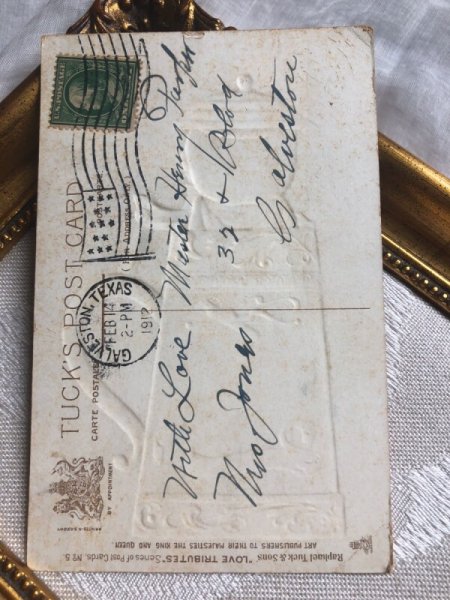 TUCK'S POST CARD
CARTE POSTALE
BY APPOINTMENT
GALVESTON, TEXAS
FEB 14
2-PM
1912
With Love
Mrs Jones
Master Henry
32 & Blvd
Galveston
Raphael Tuck & Sons' "LOVE TRIBUTES" Series of Post Cards, No. 5.
ART PUBLISHERS TO THEIR MAJESTIES THE KING AND QUEEN.